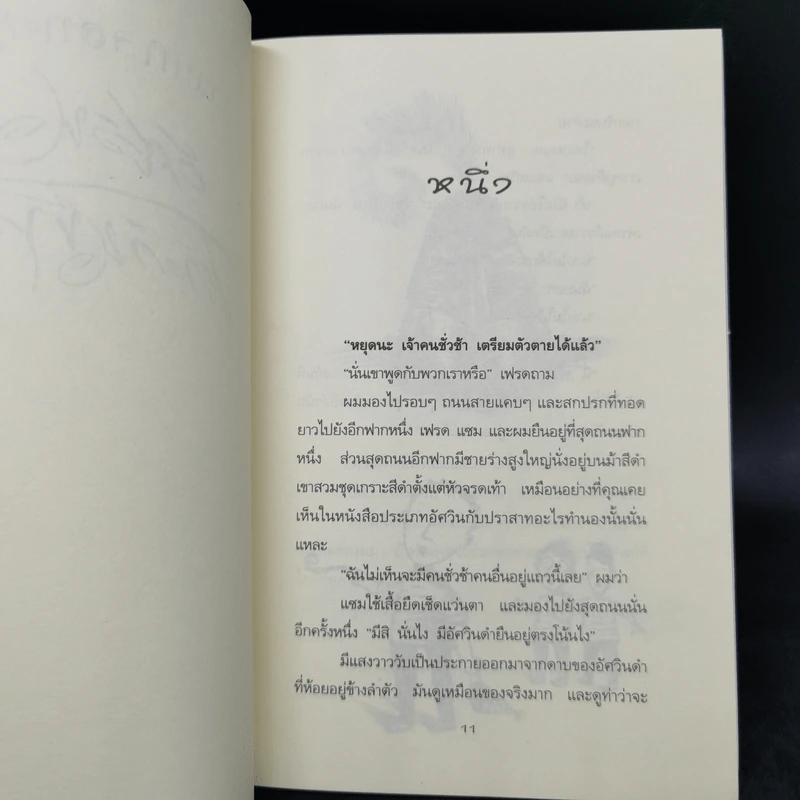 หนึ่ง
"หยุดนะ เจ้าคนชั่วช้า เตรียมตัวตายได้แล้ว"
"นั่นเขาพูดกับพวกเราหรือ" เฟรดถาม
ผมมองไปรอบๆ ถนนสายแคบๆ และสกปรกที่ทอด
ยาวไปยังอีกฟากหนึ่ง เฟรด แซม และผมยืนอยู่ที่สุดถนนฟาก
หนึ่ง ส่วนสุดถนนอีกฟากมีชายร่างสูงใหญ่นั่งอยู่บนม้าสีดำ
เขาสวมชุดเกราะสีดำตั้งแต่หัวจรดเท้า เหมือนอย่างที่คุณเคย
เห็นในหนังสือประเภทอัศวินกับปราสาทอะไรทำนองนั้นนั่น
แหละ
"ฉันไม่เห็นจะมีคนชั่วช้าคนอื่นอยู่แถวนี้เลย" ผมว่า
แซมใช้เสื้อยืดเช็ดแว่นตา และมองไปยังสุดถนนนั่น
อีกครั้งหนึ่ง "มีสิ นั่นไง มีอัศวินดำยืนอยู่ตรงโน้นไง"
มีแสงวาววับเป็นประกายออกมาจากดาบของอัศวินดำ
ที่ห้อยอยู่ข้างลำตัว มันดูเหมือนของจริงมาก และดูท่าว่าจะ
11